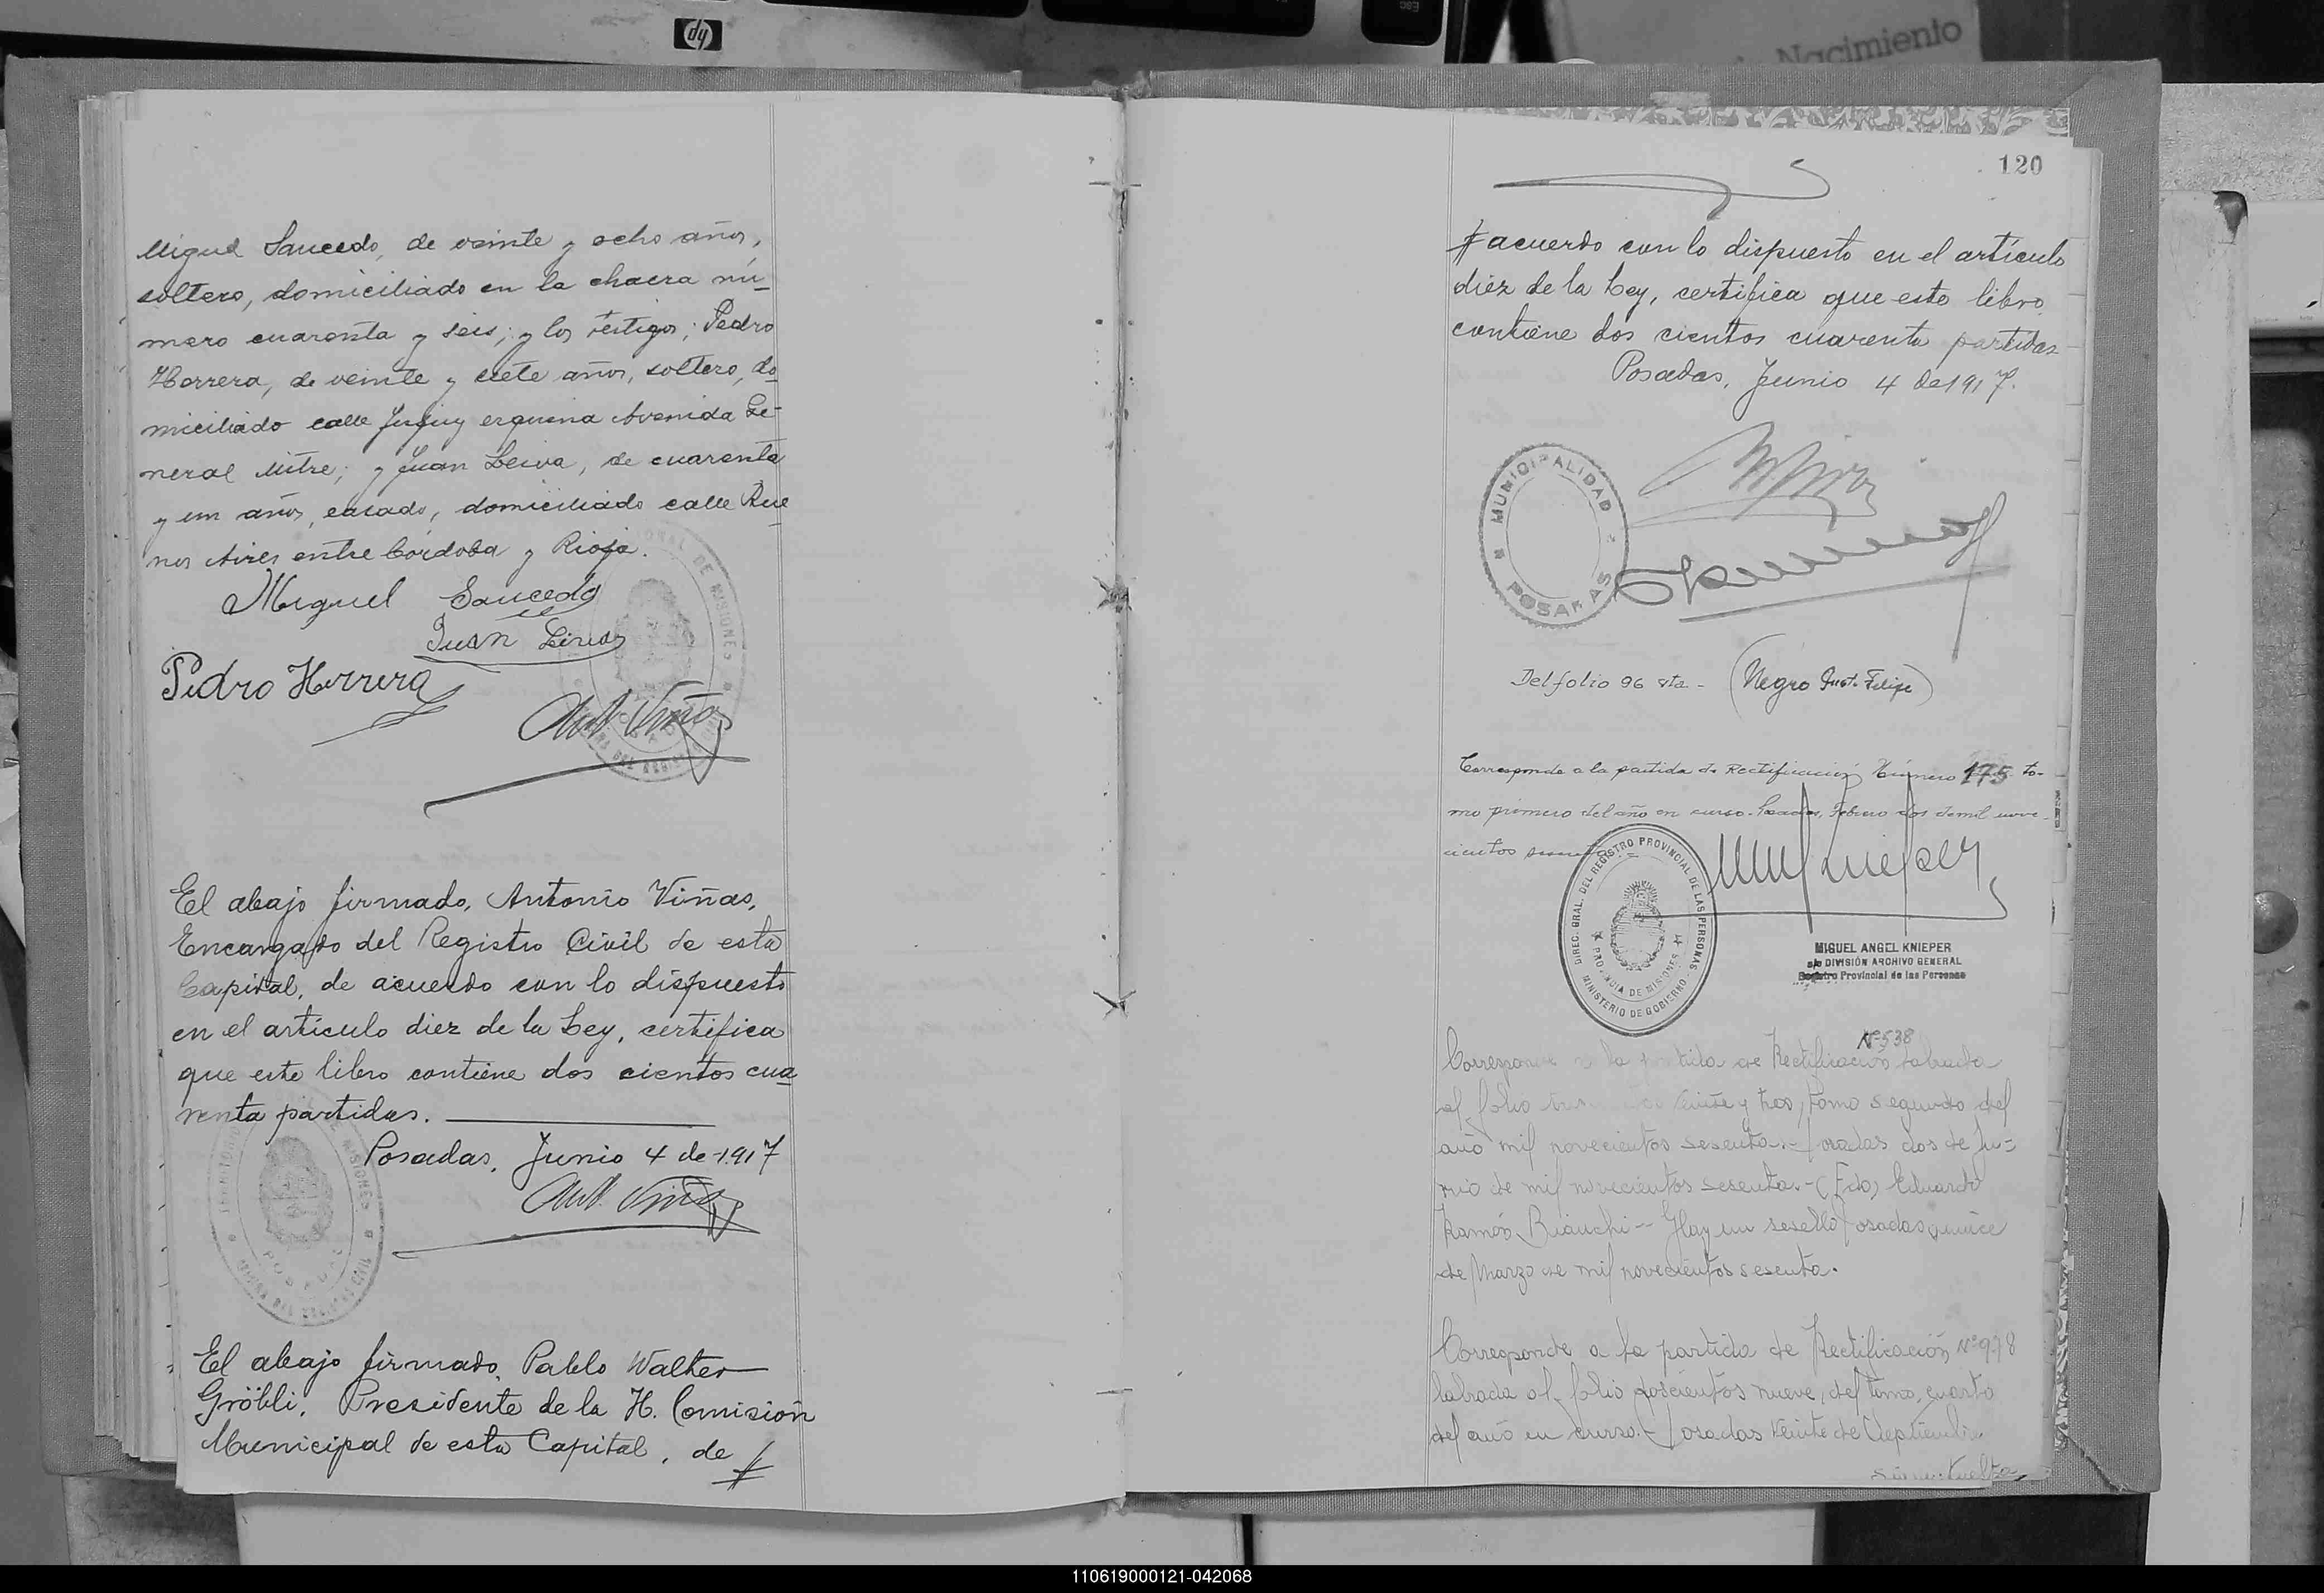 hp
Esc
Nacimiento
Miguel Saucedo, de veinte y ocho años,
soltero, domiciliado en la chacra nú-
mero cuarenta y seis; y los testigos; Pedro
Herrera, de veinte y siete años, soltero, do-
miciliado calle Jujuy esquina Avenida Ge-
neral Mitre; y Juan Leiva, de cuarenta
y un años, casado, domiciliado calle Bue
nos Aires entre Córdoba y Rioja.
Miguel Saucedo
Juan Leiva
Pedro Herrera
Ant. Viñas
El abajo firmado, Antonio Viñas,
Encargado del Registro Civil de esta
Capital, de acuerdo con lo dispuesto
en el artículo diez de la Ley, certifica
que este libro contiene dos cientos cua
renta partidas.
Posadas, Junio 4 de 1917
Ant. Viñas
El abajo firmado, Pablo Walther
Gröbli, Presidente de la H. Comisión
Municipal de esta Capital, de #
120
# acuerdo con lo dispuesto en el artículo
diez de la Ley, certifica que este libro
contiene dos cientos cuarenta partidas
Posadas, Junio 4 de 1917.
MUNICIPALIDAD
POSADAS
Del folio 96 vta - (Negro Just. Felipe)
Corresponde a la partida de Rectificación Número 175 to-
mo primero del año en curso. Posadas, Febrero dos de mil nove-
cientos sesenta
DIREC. GRAL. DEL REGISTRO PROVINCIAL DE LAS PERSONAS
PROVINCIA DE MISIONES
MINISTERIO DE GOBIERNO
MIGUEL ANGEL KNIEPER
a/c DIVISIÓN ARCHIVO GENERAL
Registro Provincial de las Personas
Nº 538
Corresponde a la partida de Rectificación labrada
al folio veinte y tres, tomo segundo del
año mil novecientos sesenta.- Posadas dos de Ju-
nio de mil novecientos sesenta.- (Fdo) Eduardo
Ramón Bianchi -- Hay un sesello Posadas quince
de Marzo de mil novecientos sesenta.
Corresponde a la partida de Rectificación Nº 978
labrada al folio doscientos nueve, del tomo cuarto
del año en curso.- Posadas veinte de Septiembre
sigue vuelta
110619000121-042068